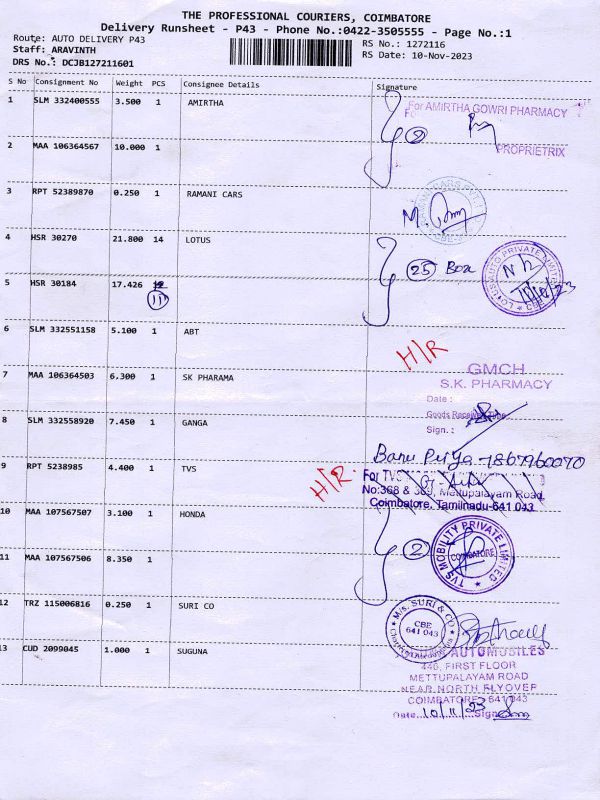 THE PROFESSIONAL COURIERS, COIMBATORE
Delivery Runsheet - P43 - Phone No.:0422-3505555 - Page No.:1
Route: AUTO DELIVERY P43
RS No.: 1272116
Staff: ARAVINTH
RS Date: 10-Nov-2023
DRS No.: DCJB127211601
S No Consignment No Weight PCS Consignee Details Signature
1 SLM 332400555 3.500 1 AMIRTHA
For AMIRTHA GOWRI PHARMACY
2
PROPRIETRIX
2 MAA 106364567 10.000 1
3 RPT 52389870 0.250 1 RAMANI CARS
4 HSR 30270 21.800 14 LOTUS
25 Box
LOTUS AUTO PRIVATE LIMITED
CBE
5 HSR 30184 17.426 11
6 SLM 332551158 5.100 1 ABT
H/R
7 MAA 106364503 6.300 1 SK PHARAMA
GMCH
S.K. PHARMACY
Date :
Goods Received
Sign. :
8 SLM 332558920 7.450 1 GANGA
Banu Priya - 7867960070
9 RPT 5238985 4.400 1 TVS
H/R
For TVS
No:368 & 369, Mettupalayam Road,
Coimbatore, Tamilnadu-641 043
10 MAA 107567507 3.100 1 HONDA
2
TVS MOBILITY PRIVATE LIMITED
COIMBATORE
11 MAA 107567506 8.350 1
12 TRZ 115006816 0.250 1 SURI CO
M/s. SURI & CO
CBE
641 043
13 CUD 2099045 1.000 1 SUGUNA
AUTOMOBILES
446, FIRST FLOOR
METTUPALAYAM ROAD
NEAR NORTH FLYOVER
COIMBATORE - 641 043
Date 10/11/23 Sign